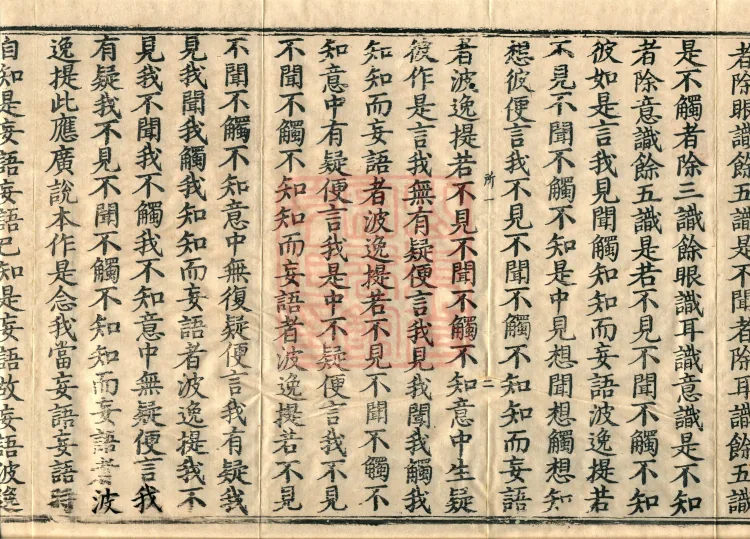 者除眼識餘五識是不聞者除耳識餘五識
是不觸者除三識餘眼識耳識意識是不知
者除意識餘五識是若不見不聞不觸不知
彼如是言我見聞觸知知而妄語波逸提若
不見不聞不觸不知是中見想聞想觸想知
想彼便言我不見不聞不觸不知知而妄語
所一 二
者波逸提若不見不聞不觸不知意中生疑
彼作是言我無有疑便言我見我聞我觸我
知知而妄語者波逸提若不見不聞不觸不
知意中有疑便言我是中不疑便言我不見
不聞不觸不知知而妄語者波逸提若不見
不聞不觸不知意中無復疑便言我有疑我
見我聞我觸我知知而妄語者波逸提我不
見我不聞我不觸我不知意中無疑便言我
有疑我不見不聞不觸不知知而妄語者波
逸提此應廣說本作是念我當妄語妄語時
自知是妄語妄語已知是妄語故妄語波逸